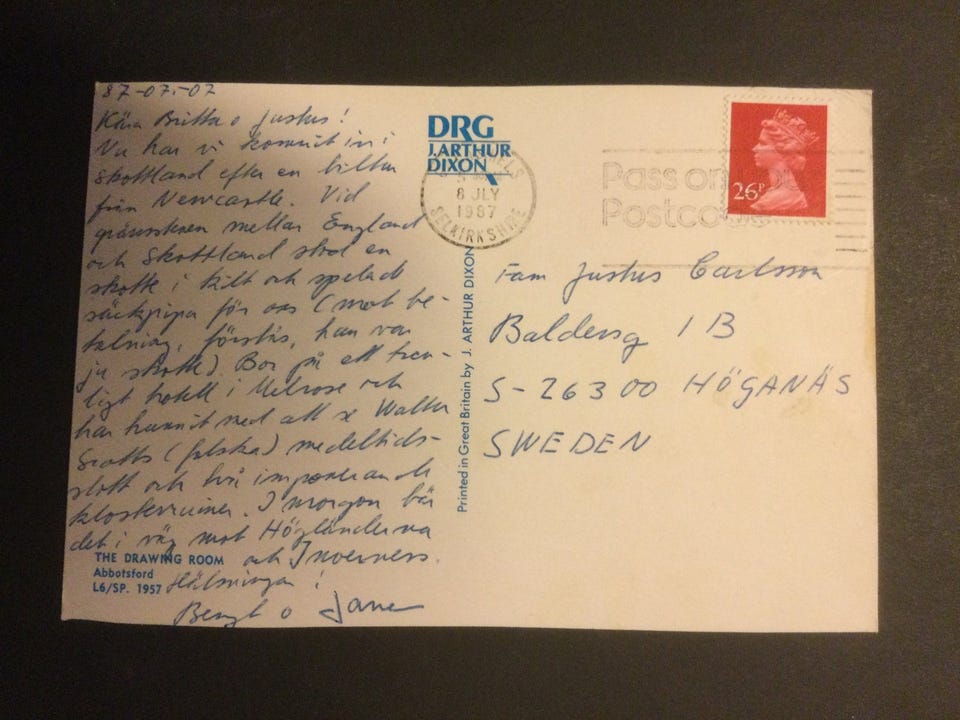 87-07-07
Kära Britta o Justus!
Nu har vi kommit in i
Skottland efter en biltur
från Newcastle. Vid
gränsen mellan England
och Skottland stod en
skotte i kilt och spelade
säckpipa för oss (mot be-
talning, förstås, han var
ju skotte). Bor på ett trev-
ligt hotell i Melrose och
har hunnit med att se Walter
Scotts (falska) medeltids-
slott och två imponerande
klosterruiner. I morgon bär
det i väg mot Högländerna
och Inverness.
Hälsningar!
Bengt o Jane
THE DRAWING ROOM
Abbotsford
L6/SP. 1957
DRG
J. ARTHUR
DIXON
8 JLY
1987
SELKIRKSHIRE
Printed in Great Britain by J. ARTHUR DIXON
Pass on
Postcode
26P
Fam Justus Carlsson
Baldersg 1B
S-263 00 HÖGANÄS
SWEDEN